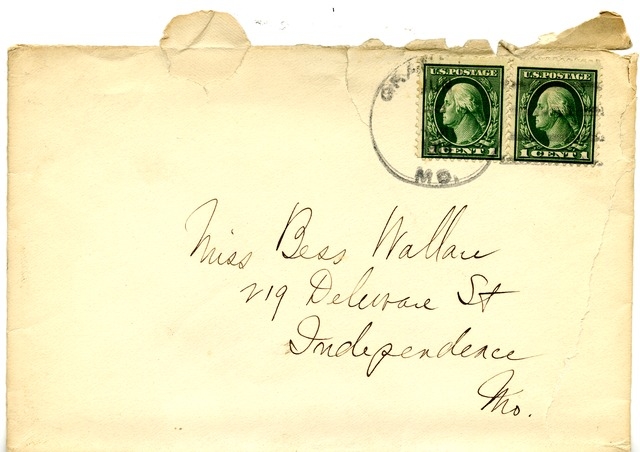 U.S. POSTAGE U.S. POSTAGE
1 CENT 1 1 CENT 1
MO.
Miss Bess Wallace
219 Delaware St
Independence
Mo.